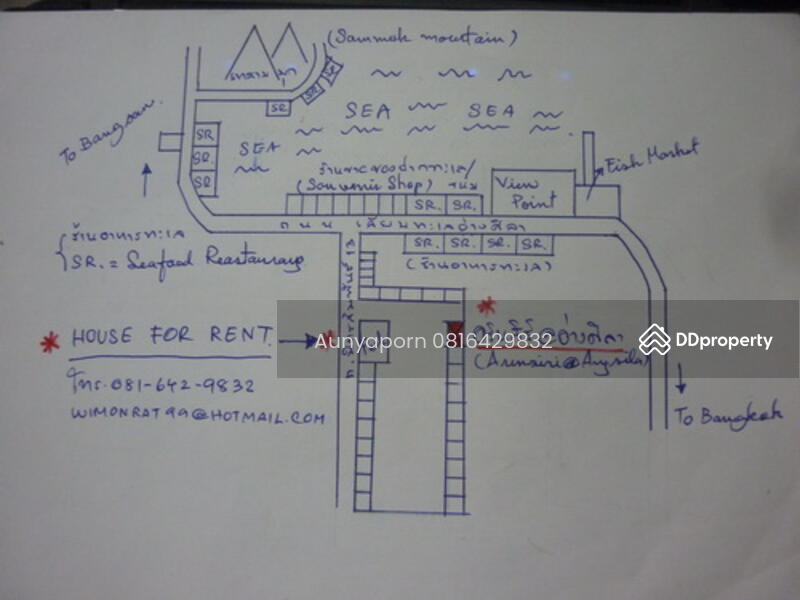 (Sammok mountain)
เขาสามมุก
SR
SR
SR
To Bangsan.
SR
SR.
SR
SEA
SEA
SEA
(Souvenir Shop)
SR.
SR.
View
Point
Fish Market
ถนน เลียบทะเลอ่างศิลา
SR.
SR.
SR.
SR.
(ร้านอาหารทะเล)
ร้านอาหารทะเล
SR. = Seafood Reastaurang
* HOUSE FOR RENT
โทร. 081-642-9832
WIMONRAT99@HOTMAIL.COM
*
Aunyaporn 0816429832
DDproperty
(Arunsiri@Angsila)
To Bangkok